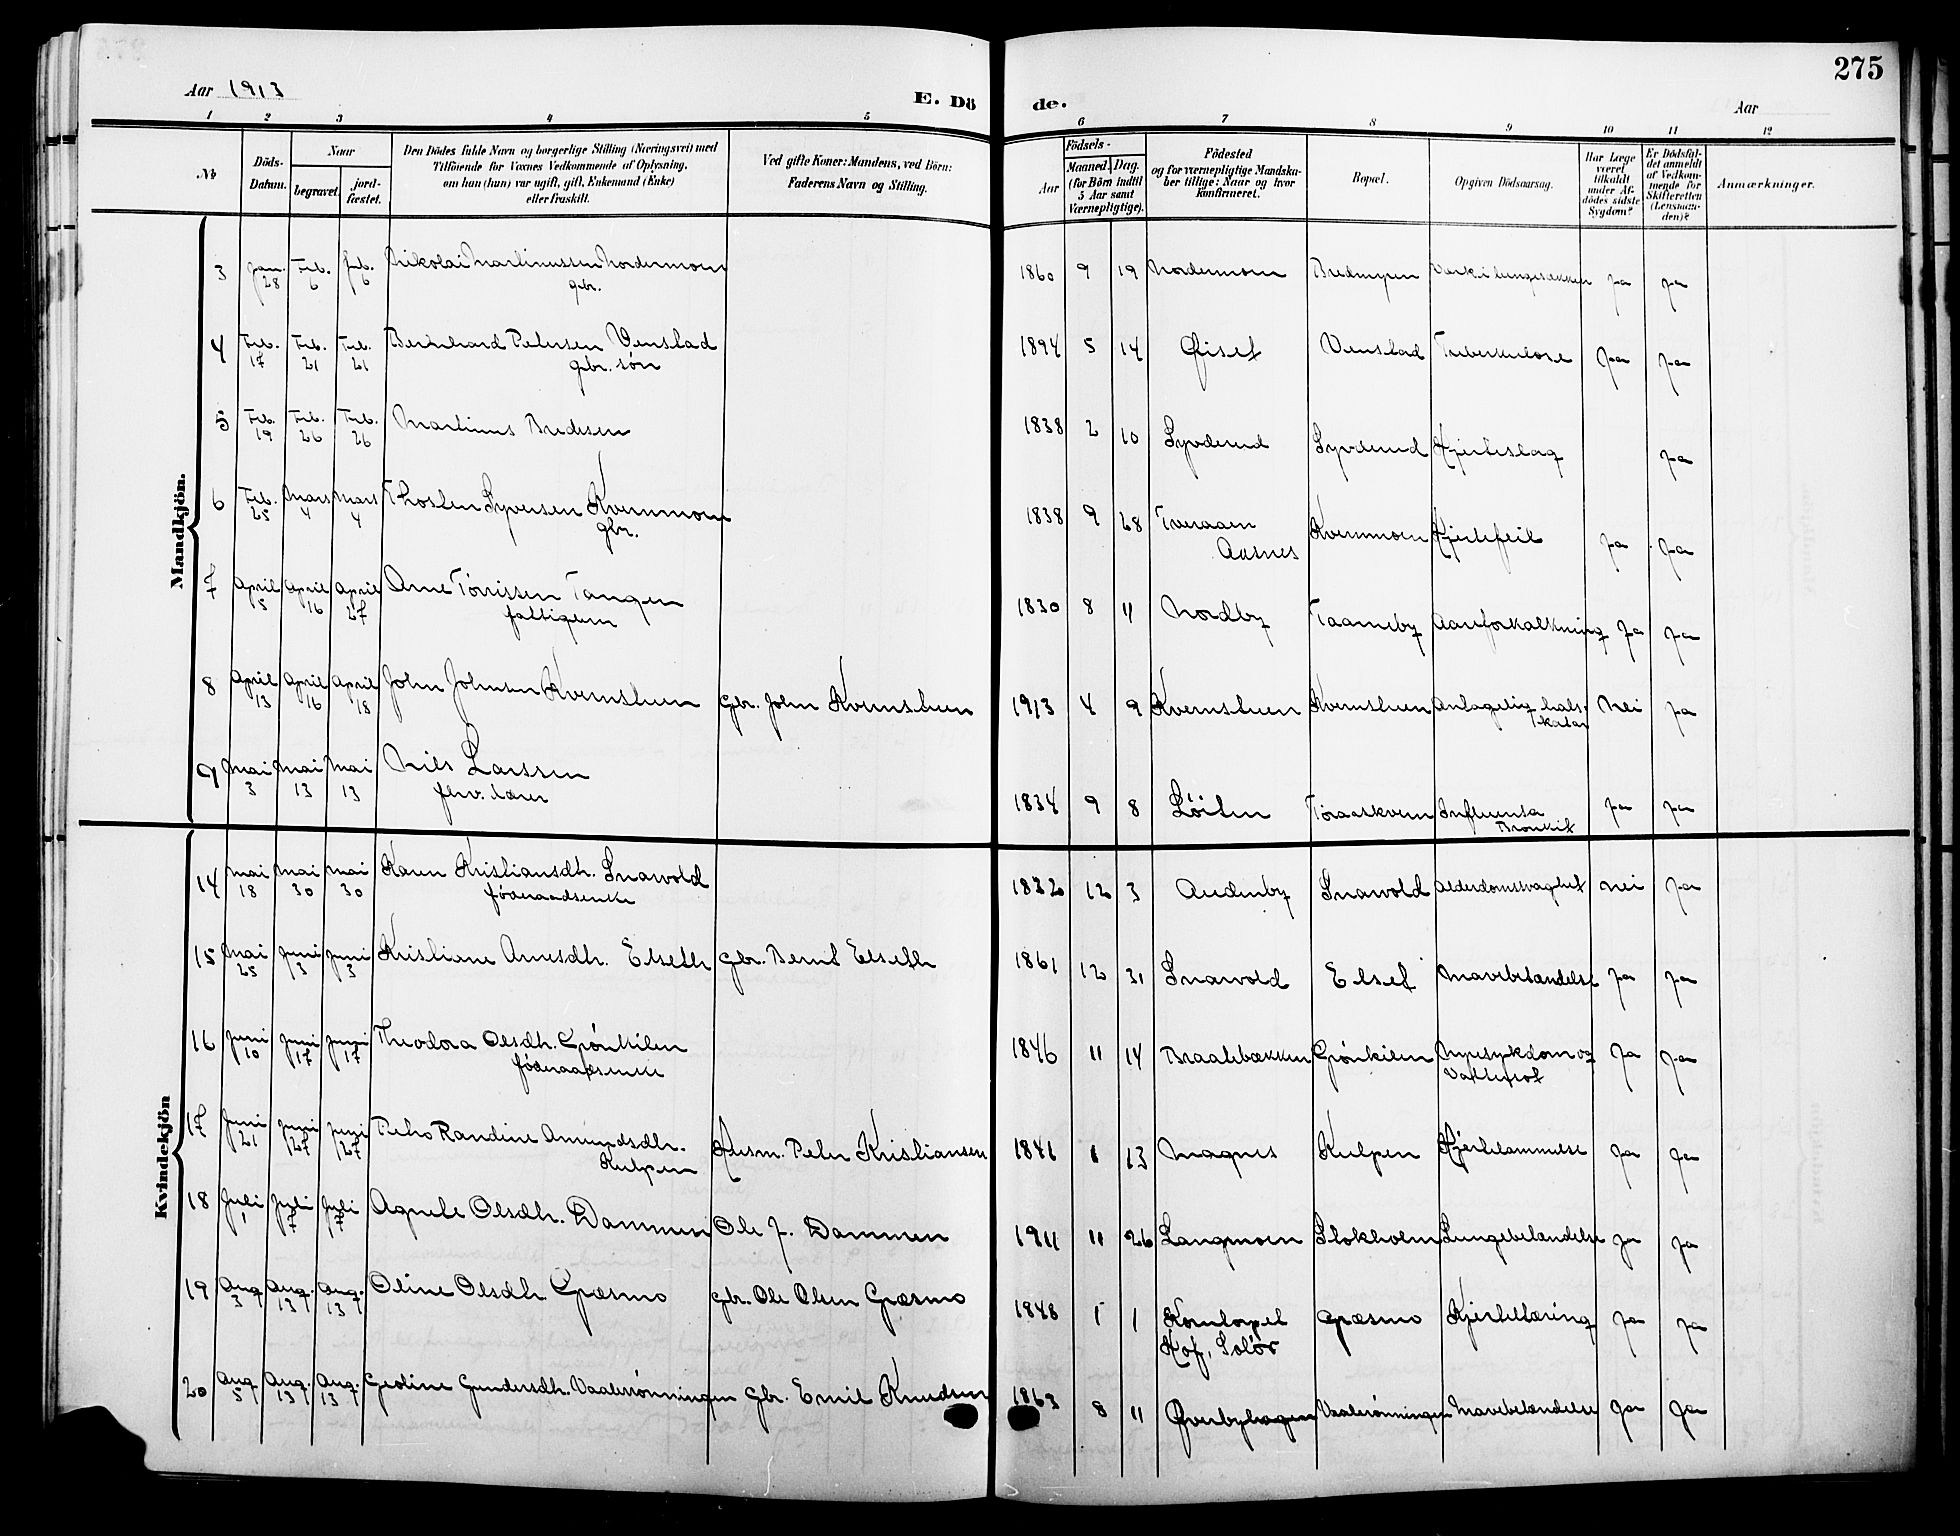 275
Aar 1913
E. Dö
de.
Aar
1 2 3 4 5 6 7 8 9 10 11 12
No
Döds-
Datum.
Naar
begravet.
jord-
fæstet.
Den Dödes fulde Navn og borgerlige Stilling (Næringsvei) med
Tilföiende for Voxnes Vedkommende af Oplysning,
om han (hun) var ugift, gift, Enkemand (Enke)
eller fraskilt.
Ved gifte Koner: Mandens, ved Börn:
Faderens Navn og Stilling.
Födsels-
Aar
Maaned. Dag.
(for Börn indtil
5 Aar samt
Værnepligtige).
Födested
og for værnepligtige Mandska-
ber tillige: Naar og hvor
konfirmeret.
Bopæl.
Opgiven Dödsaarsag.
Har Læge
været
tilkaldt
under Af-
dödes sidste
Sygdom?
Er Dödsfal-
det anmeldt
af Vedkom-
mende for
Skifteretten
(Lensman-
den)?
Anmærkninger.
Mandkjön.
3 Jan. 28 Feb. 6 Feb. 6 Nikolai Martinussen Nordermoen 1860 9 19 Nordermoen Bredmyren Værk i lungesækken ja ja
gbr.
4 Feb. 17 Feb. 21 Feb. 21 Bernhard Petersen Venstad 1894 5 14 Venstad Tuberkulose ja ja
gbr. søn
5 Feb. 19 Feb. 26 Feb. 26 Martinus Bredesen 1838 2 10 Syverud Syverud Hjerteslag ja
6 Feb. 25 Mars 4 Mars 4 Thosten Syversen Kvernmoen 1838 9 28 Tveraaen Aasnes Kvernmoen Hjertefeil ja ja
gbr.
7 April 5 April 16 April 27 Arne Tørrissen Tangen 1830 8 11 Nordby Taarneby Aareforkalkning ja ja
fattigem
8 April 13 April 16 April 18 John Johnsen Kvernstuen gbr. John Kvernstuen 1913 4 9 Kvernstuen Kvernstuen Antagelig hals-katar nei ja
9 Mai 3 Mai 13 Mai 13 Nils Larssen 1834 9 8 Løiten Toraaskvern Influensa Bronkit ja ja
fhv. lærer
Kvindekjön
14 Mai 18 Mai 30 Mai 30 Karen Kristiansdtr. Snarvold 1832 12 3 Audenby Snarvold Alderdomssvaghet nei ja
føderaadsenke
15 Mai 25 Juni 3 Juni 3 Kristiane Arnesdtr. Elseth gbr. Bernt Elseth 1861 12 31 Snarvold Elset Mavebetændelse ja ja
16 Juni 10 Juni 17 Juni 17 Theodora Olsdtr. Grønkilen 1846 11 14 Braatebækken Grønkilen Nyresykdom og Vattersot ja ja
føderaadsenke
17 Juni 21 Juni 27 Juni 27 Randine Amundsdtr. Kulpen Husm. Peter Kristiansen 1841 1 13 Magnes Kulpen Hjertelammelse ja ja
18 Juli 1 Juli 7 Juli 7 Agnete Olsdtr. Dammen Ole J. Dammen 1911 11 26 Langmoen Stokholm Lungebetændelse ja ja
19 Aug 3 Aug. 13 Aug. 13 Oline Olsdtr. Græsmo gbr. Ole Olsen Græsmo 1848 1 1 Korntorpet Hof, Solør Græsmo Hjertetæring ja ja
20 Aug 5 Aug. 13 Aug. 13 Gedine Gundersdtr. Vaalerønningen gbr. Emil Knudsen 1863 8 11 Øverbyhagen Vaalerønningen Mavebetændelse ja ja